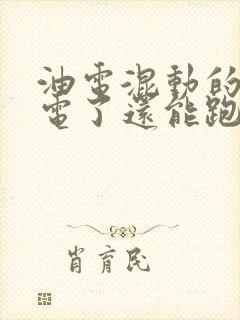 油電混動的
電了還能跑
肖育民